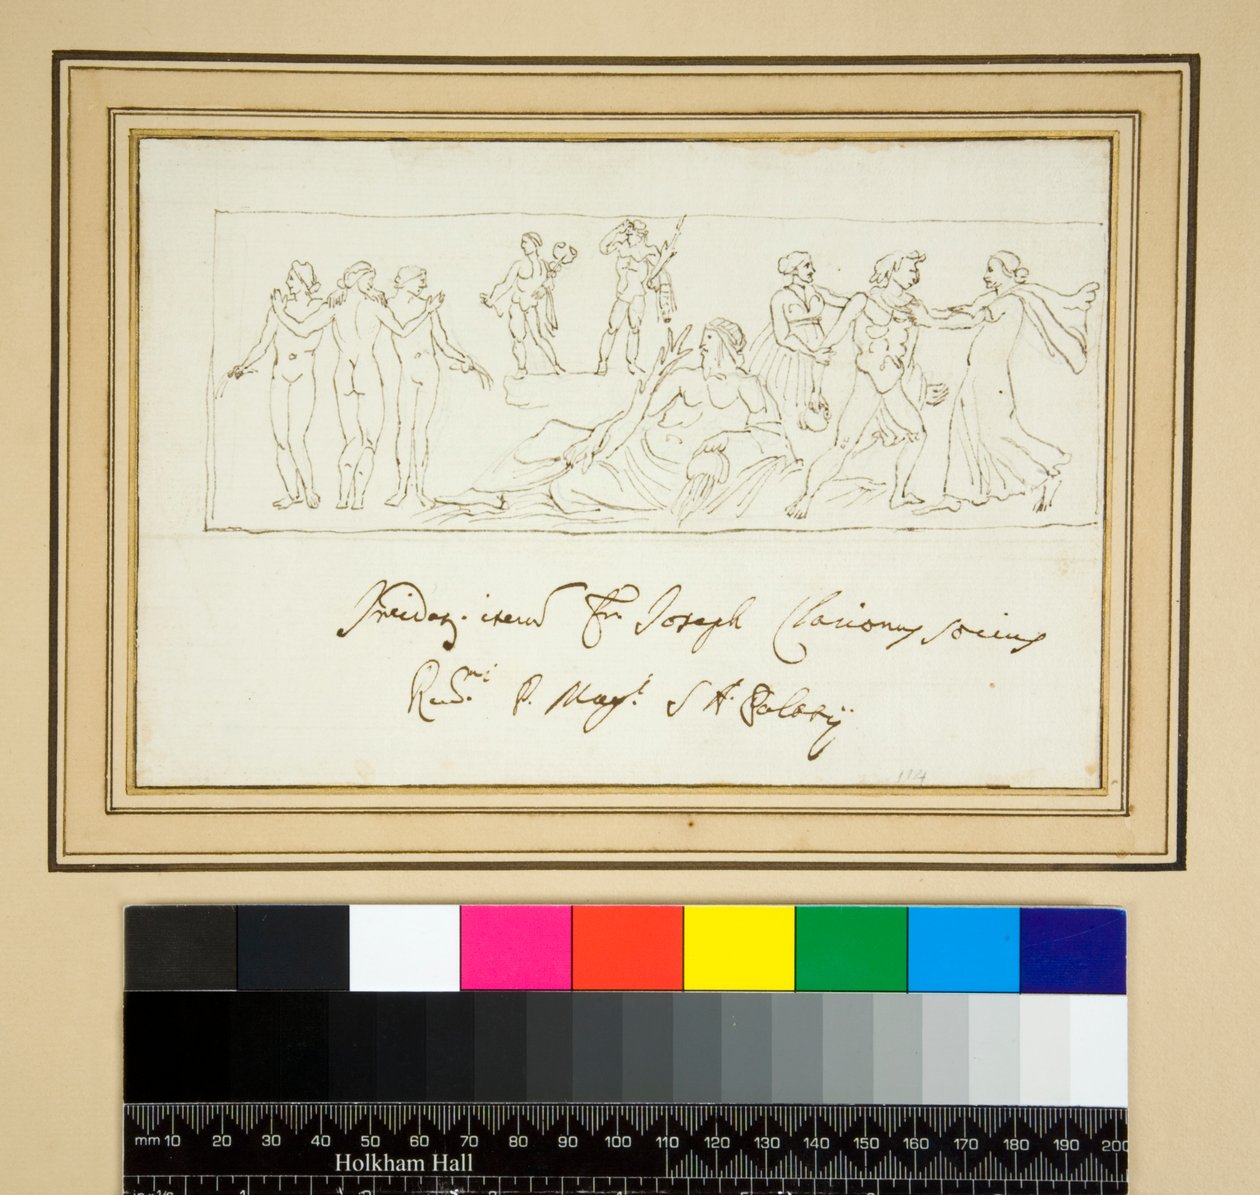 Fr. Joseph Clarionus socius
Rev.mi P. Mag.i S A.
114
mm 10 20 30 40 50 60 70 80 90 100 110 120 130 140 150 160 170 180 190 200
Holkham Hall